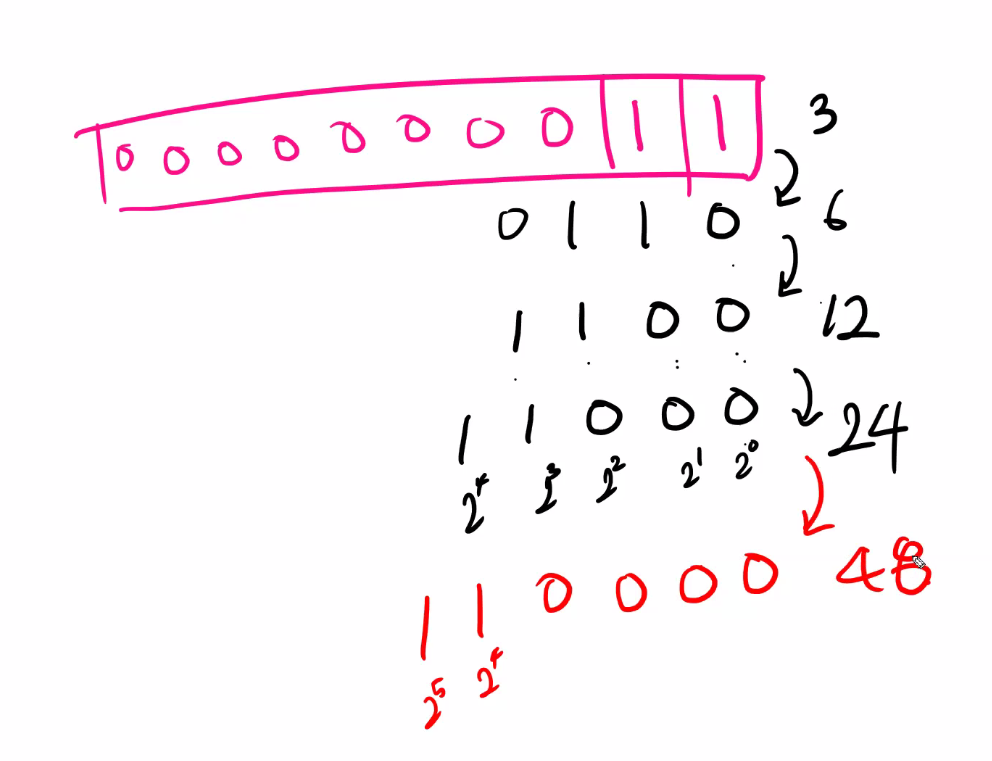 0 0 0 0 0 0 0 0 1 1 3
0 1 1 0 6
1 1 0 0 12
1 1 0 0 0 24
2⁴ 2³ 2² 2¹ 2⁰
1 1 0 0 0 0 48
2⁵ 2⁴